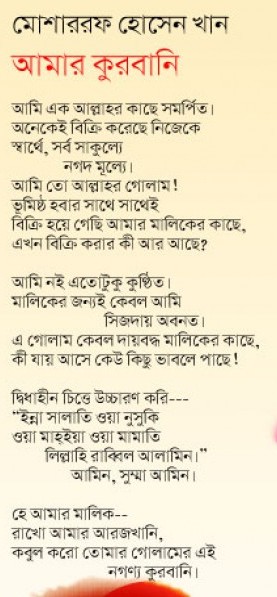 মোশাররফ হোসেন খান
আমার কুরবানি
আমি এক আল্লাহর কাছে সমর্পিত।
অনেকেই বিক্রি করেছে নিজেকে
স্বার্থে, সর্ব সাকুল্যে
নগদ মূল্যে।
আমি তো আল্লাহর গোলাম!
ভূমিষ্ঠ হবার সাথে সাথেই
বিক্রি হয়ে গেছি আমার মালিকের কাছে,
এখন বিক্রি করার কী আর আছে?
আমি নই এতোটুকু কুণ্ঠিত।
মালিকের জন্যই কেবল আমি
সিজদায় অবনত।
এ গোলাম কেবল দায়বদ্ধ মালিকের কাছে,
কী যায় আসে কেউ কিছু ভাবলে পাছে!
দ্বিধাহীন চিত্তে উচ্চারণ করি---
“ইন্না সালাতি ওয়া নুসুকি
ওয়া মাহ্ইয়া ওয়া মামাতি
লিল্লাহি রাব্বিল আলামিন।”
আমিন, সুম্মা আমিন।
হে আমার মালিক--
রাখো আমার আরজখানি,
কবুল করো তোমার গোলামের এই
নগণ্য কুরবানি।